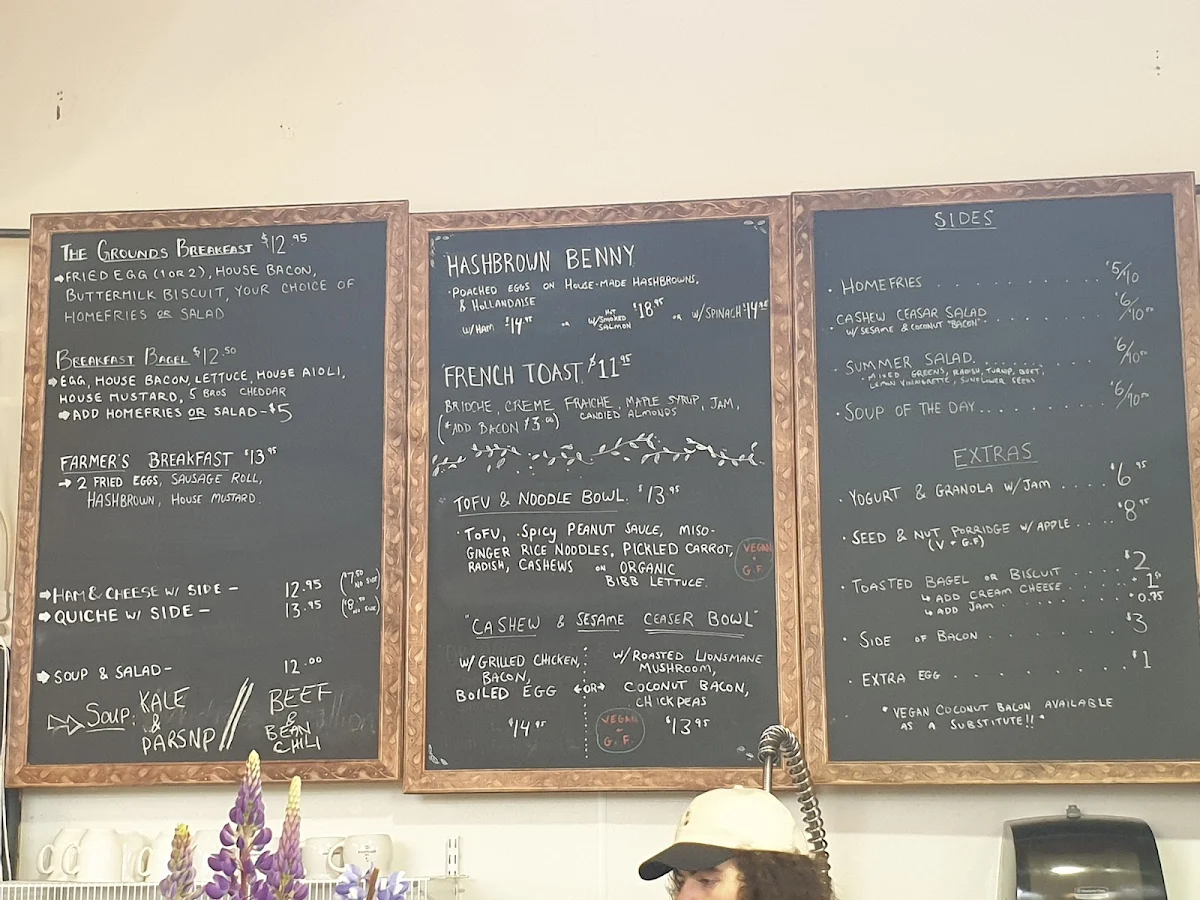 THE GROUNDS BREAKFAST $12.95
FRIED EGG (1 OR 2), HOUSE BACON,
BUTTERMILK BISCUIT, YOUR CHOICE OF
HOMEFRIES OR SALAD
BREAKFAST BAGEL $12.50
EGG, HOUSE BACON, LETTUCE, HOUSE AIOLI,
HOUSE MUSTARD, 5 BROS CHEDDAR
ADD HOMEFRIES OR SALAD - $5
FARMER'S BREAKFAST $13.95
2 FRIED EGGS, SAUSAGE ROLL,
HASHBROWN, HOUSE MUSTARD.
HAM & CHEESE W/ SIDE - 12.95 ($7.50 NO SIDE)
QUICHE W/ SIDE - 13.95 ($8.50 NO SIDE)
SOUP & SALAD - 12.00
SOUP: KALE & PARSNP // BEEF & BEAN CHILI
HASHBROWN BENNY
· POACHED EGGS ON HOUSE-MADE HASHBROWNS,
& HOLLANDAISE
W/HAM $14.95 OR HOT W/SMOKED SALMON $18.95 OR W/SPINACH $14.95
FRENCH TOAST $11.95
BRIOCHE, CREME FRAICHE, MAPLE SYRUP, JAM,
CANDIED ALMONDS
(*ADD BACON $3.00)
TOFU & NOODLE BOWL. $13.95
· TOFU, SPICY PEANUT SAUCE, MISO-
GINGER RICE NOODLES, PICKLED CARROT,
RADISH, CASHEWS ON ORGANIC
BIBB LETTUCE.
VEGAN + G.F.
"CASHEW & SESAME CEASER BOWL"
W/ GRILLED CHICKEN,
BACON,
BOILED EGG
$14.95
OR
W/ ROASTED LIONSMANE
MUSHROOM,
COCONUT BACON,
CHICKPEAS
VEGAN + G.F.
$13.95
SIDES
· HOMEFRIES . . . . . . . . . . $5/10
· CASHEW CEASAR SALAD . . . . . . . $6/10.00
W/ SESAME & COCONUT "BACON"
· SUMMER SALAD. . . . . . . . . $6/10.00
· MIXED GREENS, RADISH, TURNIP, BEET,
LEMON VINAIGRETTE, SUNFLOWER SEEDS
· SOUP OF THE DAY. . . . . . . . $6/10.00
EXTRAS
· YOGURT & GRANOLA W/JAM . . . . $6.95
· SEED & NUT PORRIDGE W/ APPLE . . . . . $8.95
(V + G.F)
· TOASTED BAGEL OR BISCUIT . . . . . . $2
ADD CREAM CHEESE . . . . . . 1.50
ADD JAM . . . . . . . . . . 0.75
· SIDE OF BACON . . . . . . . . $3
· EXTRA EGG . . . . . . . . . $1
*VEGAN COCONUT BACON AVAILABLE
AS A SUBSTITUTE!!*